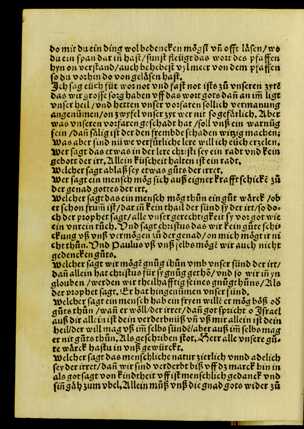 do mit du ein ding wol bedencken mögst vn̄ offt läsen/ wo
du ein span dar in hast/ sunst fleügt das wort des pfaffen
hyn on verstand/ auch behebest vyl meer von dem pfaffen
so du vorhin do von geläsen hast.
Ich sag eüch für wor not vnd fast not ists zů vnseren zytē
das wir grosse sorg haben vff das wort gots dan̄ an im ligt
vnser heil/ vnd hetten vnser vorfaren sollich vermanung
angenūmen/ on zwyfel vnser zyt wer nit so gefärlich. Aber
was vnseren vorfarē geschadt hat/ soll vns ein warnūg
sein/ dan̄ sälig ist der den frembde schaden witzig machen;
Was aber sind nüwe verfürliche lere will ich eüch erzelen.
Wer sagt das etwas in der lere christi sey ein radt vnd kein
gebott der irt. Allein küscheit halten ist ein radt.
Welcher sagt ablaß sey etwas gůts der irret.
Wer sagt ein mensch mög sich auß eigner krafft schickē zů
der genad gottes der irt.
Welcher sagt das ein mensch mög thůn ein gůt wärck/ ob
er schon frum ist/ dar in kein thail der sünd sy der irt/ so do-
ch der prophet sagt/ alle vnser gerechtigkeit sy vor got wie
ein vnrein tůch. Vnd sagt christus das wir kein gůte schi
ckung vß vnß vermögen zů der genad/ on mich mögt ir ni
cht thůn. Vnd Paulus vß vnß selbs mögē wir auch nicht
gedencken gůts.
Welcher sagt wir mögē gnůg thůn vmb vnser sünd der irt/
dan̄ allein hat christus für sy gnůg gethō/ vnd so wir in yn
glouben/ werden wir theilhafftig seines gnůgthůns/ Als
der prophet sagt. Er hat hingenūmen vnser sünd.
Welcher sagt ein mensch hab ein fryen willē er mög böß oď
gůts thůn/ wan̄ er wöll der irret/ dan̄ got spricht o Israel
auß dir allein ist dein verderbnüß vn̄ vß mir allein ist dein
heil/ der will mag vß im̄ selbs sündē/ aber auß im̄ selbs mag
er nit gůts thůn. Als geschriben stot. Herr alle vnsere gů-
te wärck hastu in vnß gewürckt.
Welcher sagt das menschliche natur zierlich vnnd adelich
sey der irret/ dan̄ wir sind verderbt biß vff dz marck hin in
als got sagt von kindtheit vff ist menschlich gedanck vnd
sin̄ gäh zum vbel. Allein můß vnß die gnad gots wider zů